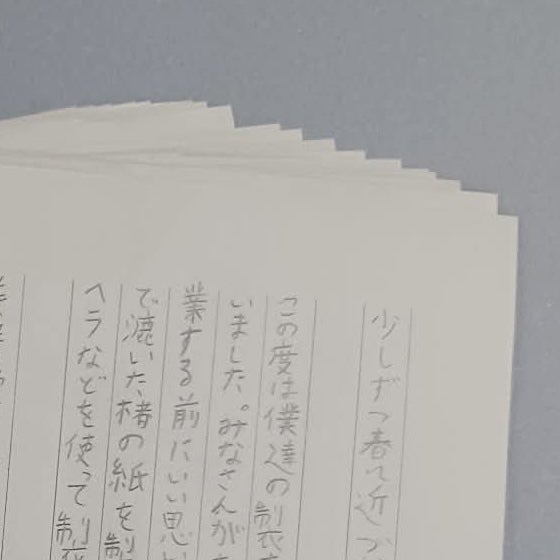 少しずつ春に近づ
この度は僕達の制
いました。みなさんが
業する前にいい思い
で漉いた楮の紙を制
ヘラなどを使って制